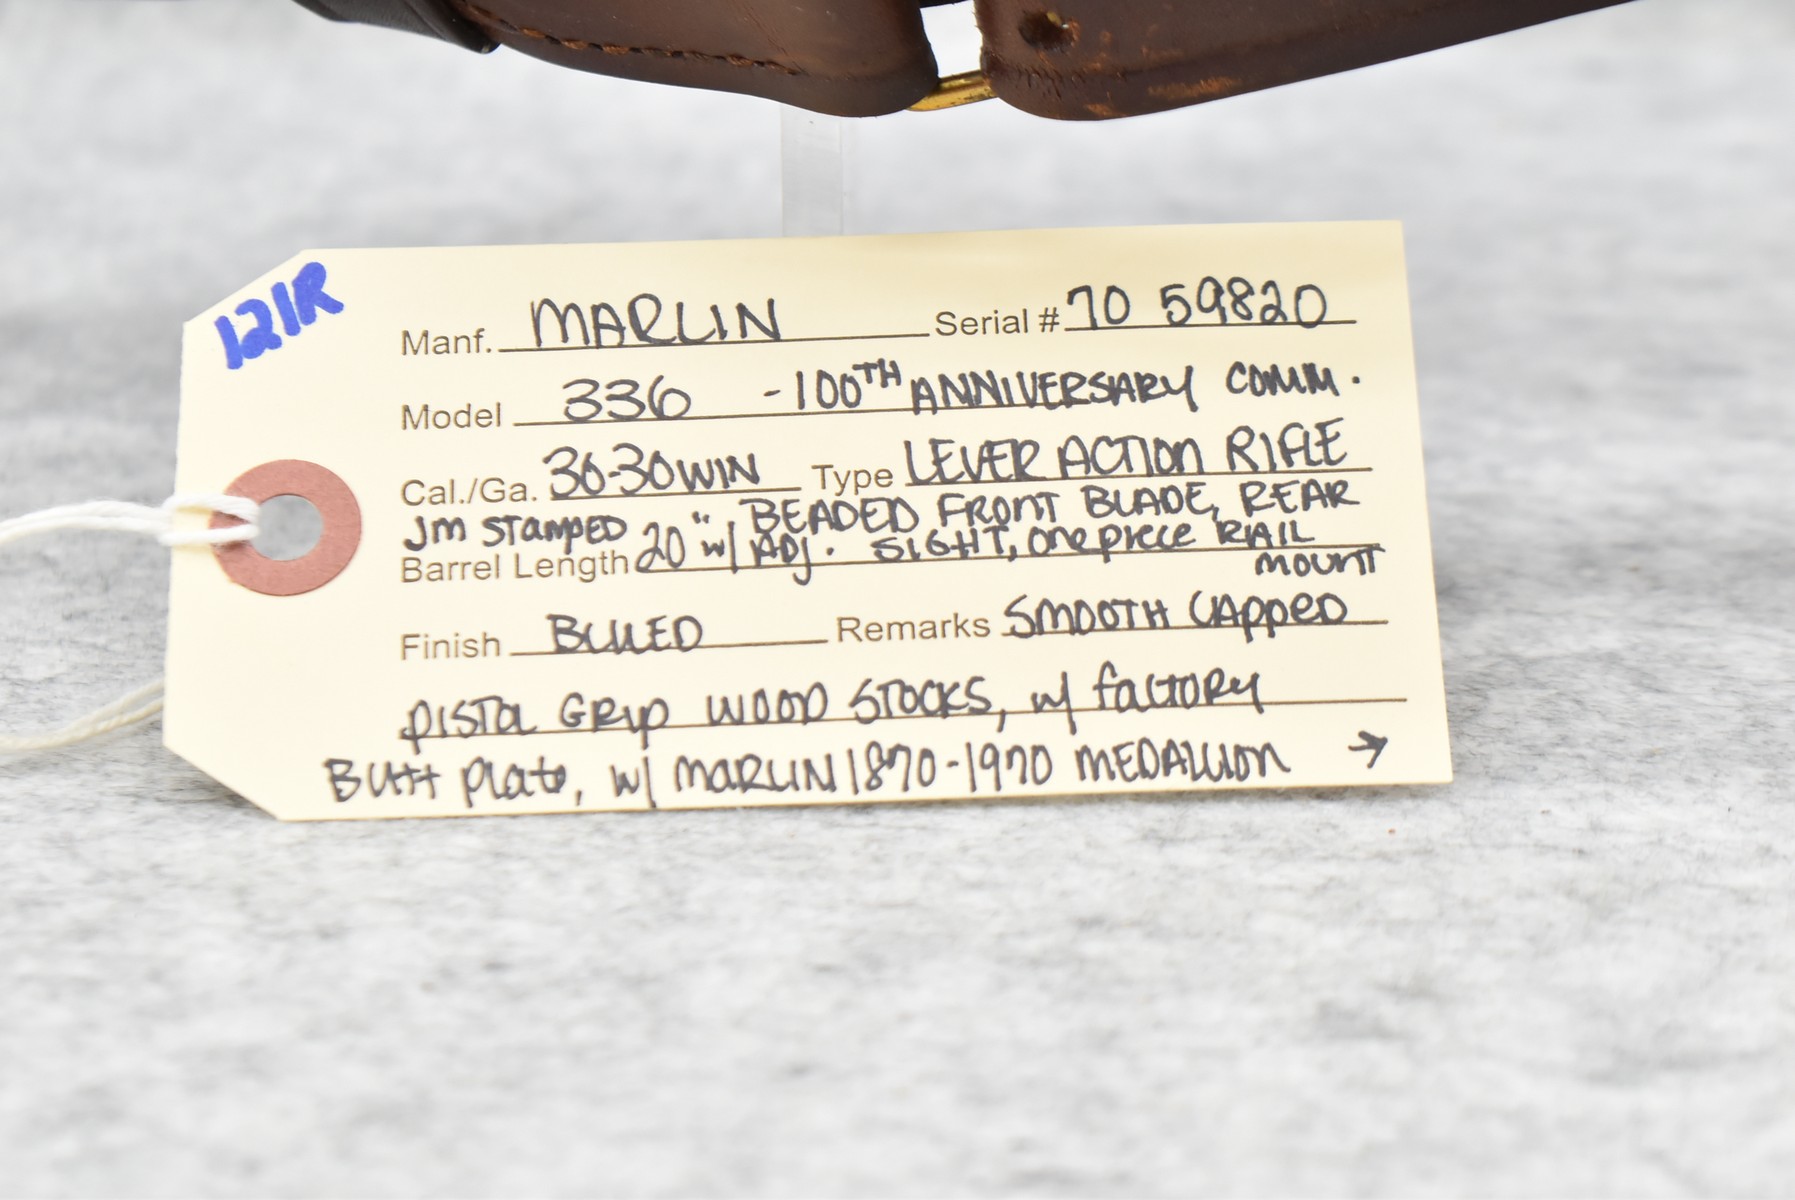 121R
Manf. MARLIN Serial # 70 59820
Model 336 - 100TH ANNIVERSARY COMM.
Cal./Ga. 30-30 WIN Type LEVER ACTION RIFLE
JM STAMPED BEADED FRONT BLADE, REAR
Barrel Length 20" w/ ADJ. SIGHT, one piece RAIL
mount
Finish BLUED Remarks SMOOTH CAPPED
PISTOL GRIP WOOD STOCKS, w/ factory
Butt plate, w/ MARLIN 1870-1970 MEDALLION →